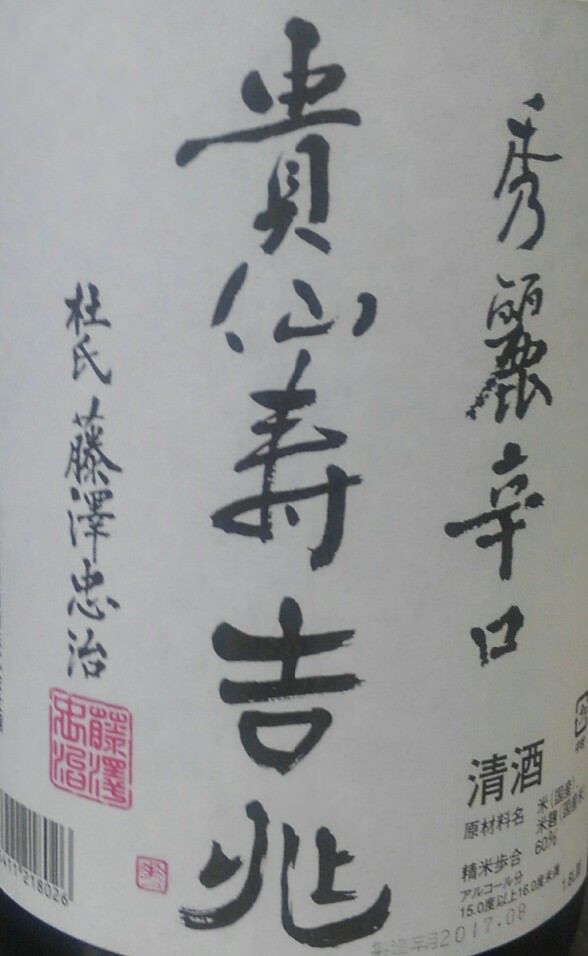 秀麗辛口
貴仙寿吉兆
杜氏 藤澤忠治
藤澤忠治
清酒
原材料名 米(国産)
米麹(国産米
精米歩合 60%
アルコール分
15.0度以上16.0度未満
1.8L
製造年月2017.09
218026